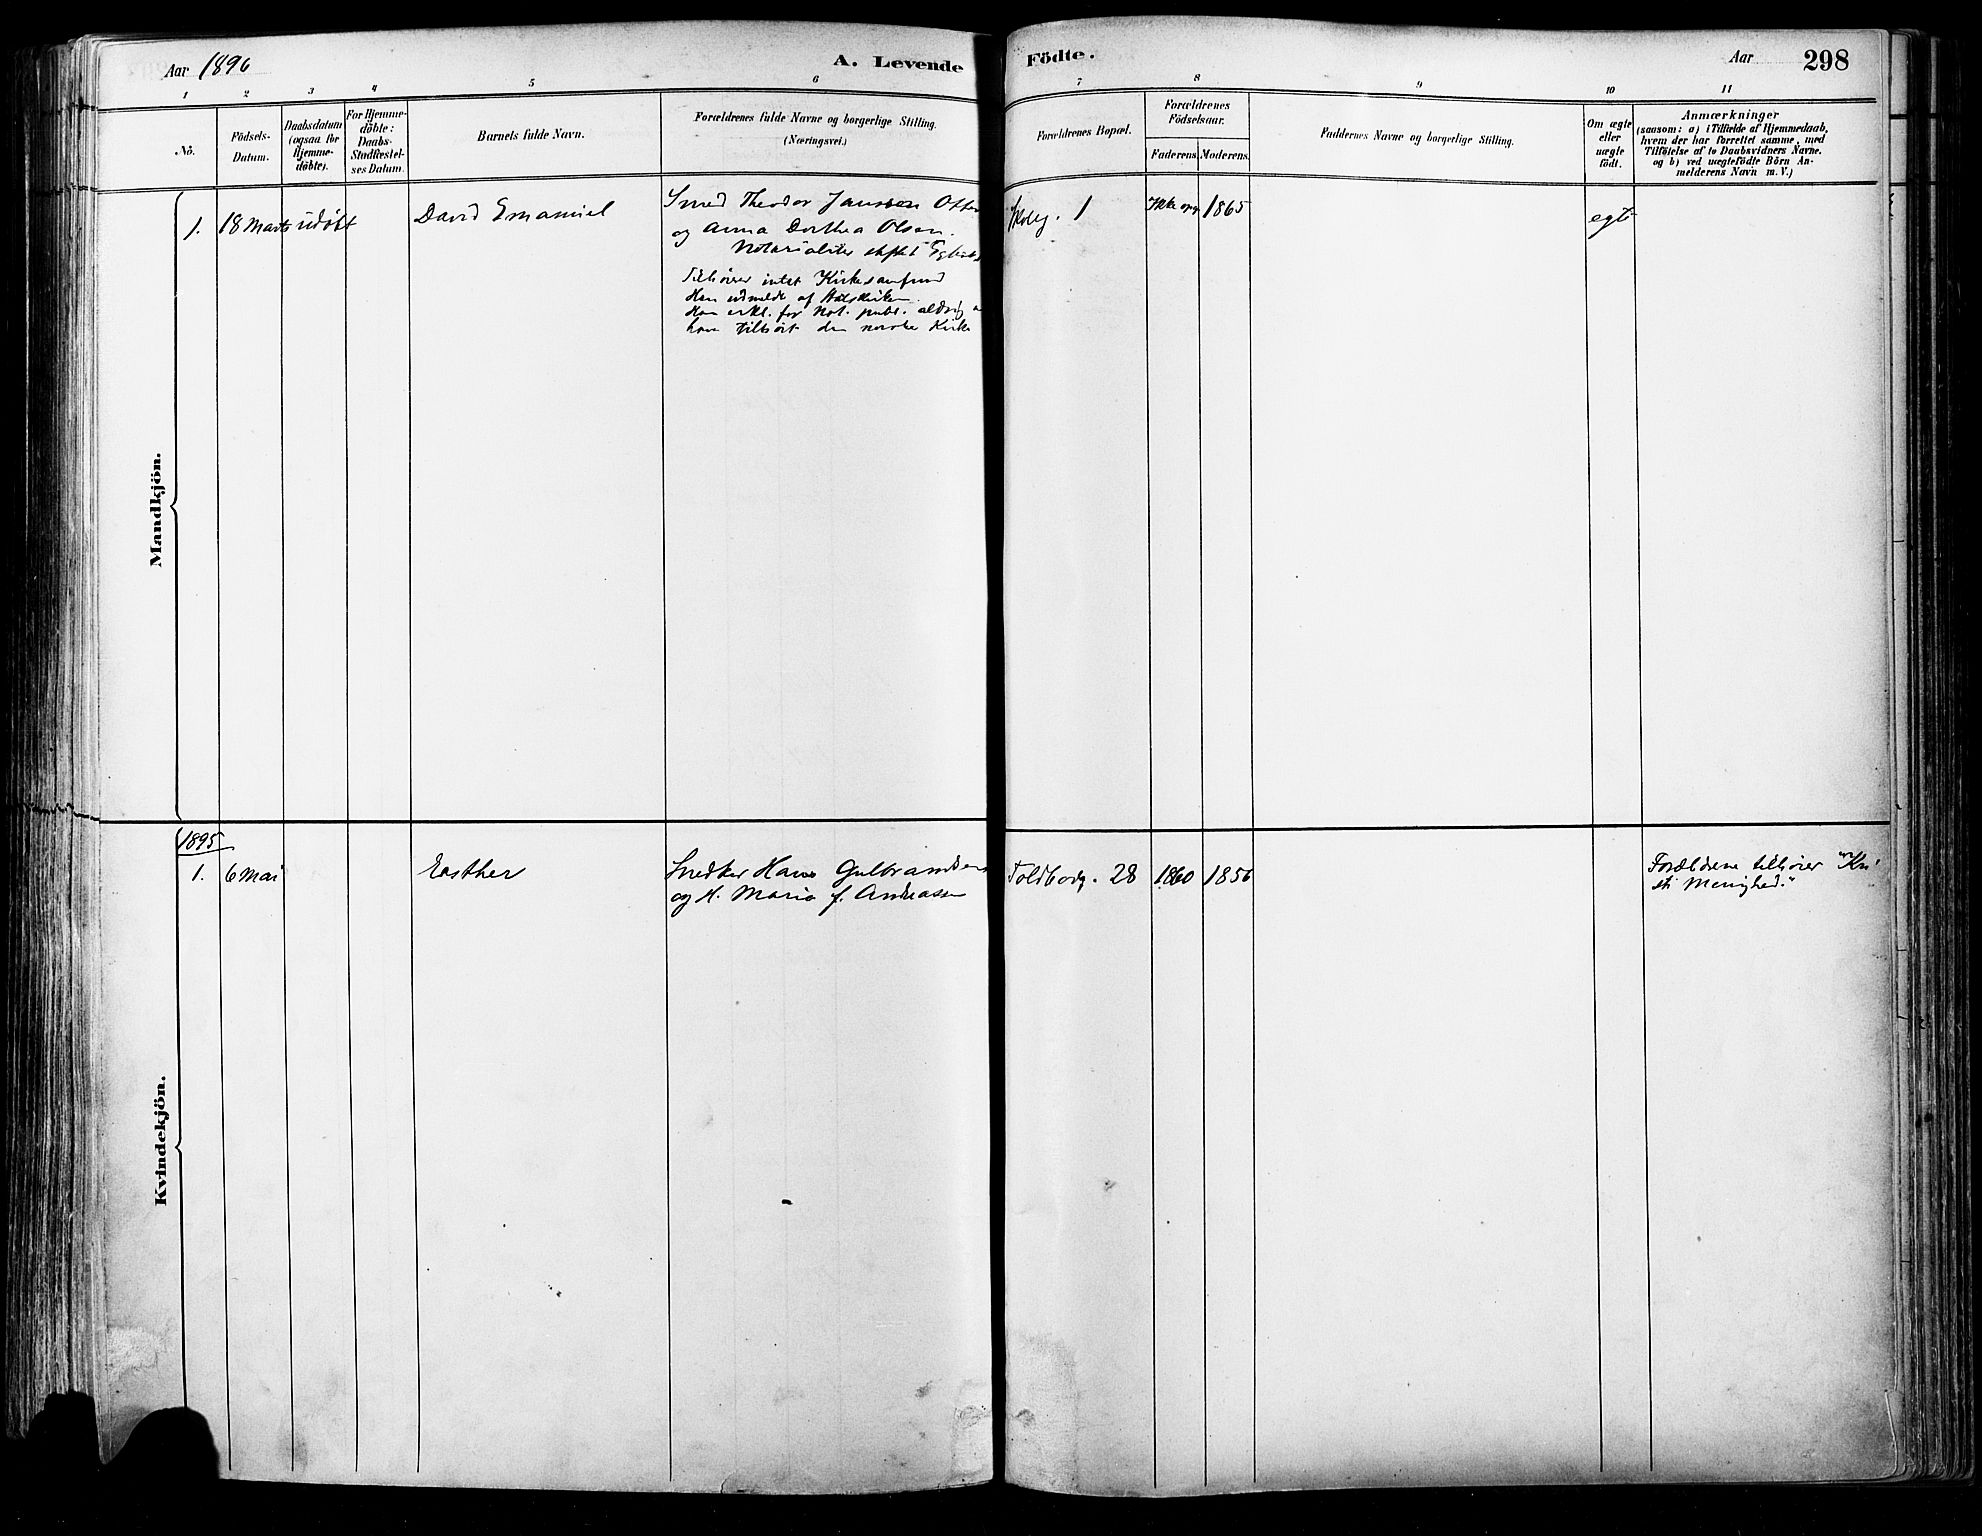 Aar 1896
A. Levende Födte.
Aar
298
1 2 3 4 5 6 7 8 9 10 11
No.
Födsels-
Datum.
Daabsdatum
(ogsaa for
Hjemme-
döbte).
For Hjemme-
döbte:
Daabs-
Stadfæstel-
ses Datum.
Barnets fulde Navn.
Forældrenes fulde Navne og borgerlige Stilling.
(Næringsvei.)
Forældrenes Bopæl.
Forældrenes
Födselsaar.
Faderens. Moderens.
Faddernes Navne og borgerlige Stilling.
Om ægte
eller
uægte
født.
Anmærkninger
(saasom: a) i Tilfælde af Hjemmedaab,
hvem der har forrettet samme, med
Tilföielse af to Daabsvidners Navne.
og b) ved uægtefödte Börn An-
melderens Navn m. V.)
Mandkjön.
1. 18 Marts udöbt David Emanuel
Smed Theodor Janssen
og Anna Dorthea Olsen.
Tilhörer intet Kirkesamfund
Han udmeldt af Statskirken.
Hun erkl. for Not. publ. aldrig
have tilhört den norske Kirke
1 1865 egte
Kvindekjön.
1895
1. 6 Mai Easther
Snedker Hans Gulbrandsen
og H. Marie f. Andreassen
Toldbodg. 28 1860 1856
Forældrene tilhörer "Kri
sti Menighed."